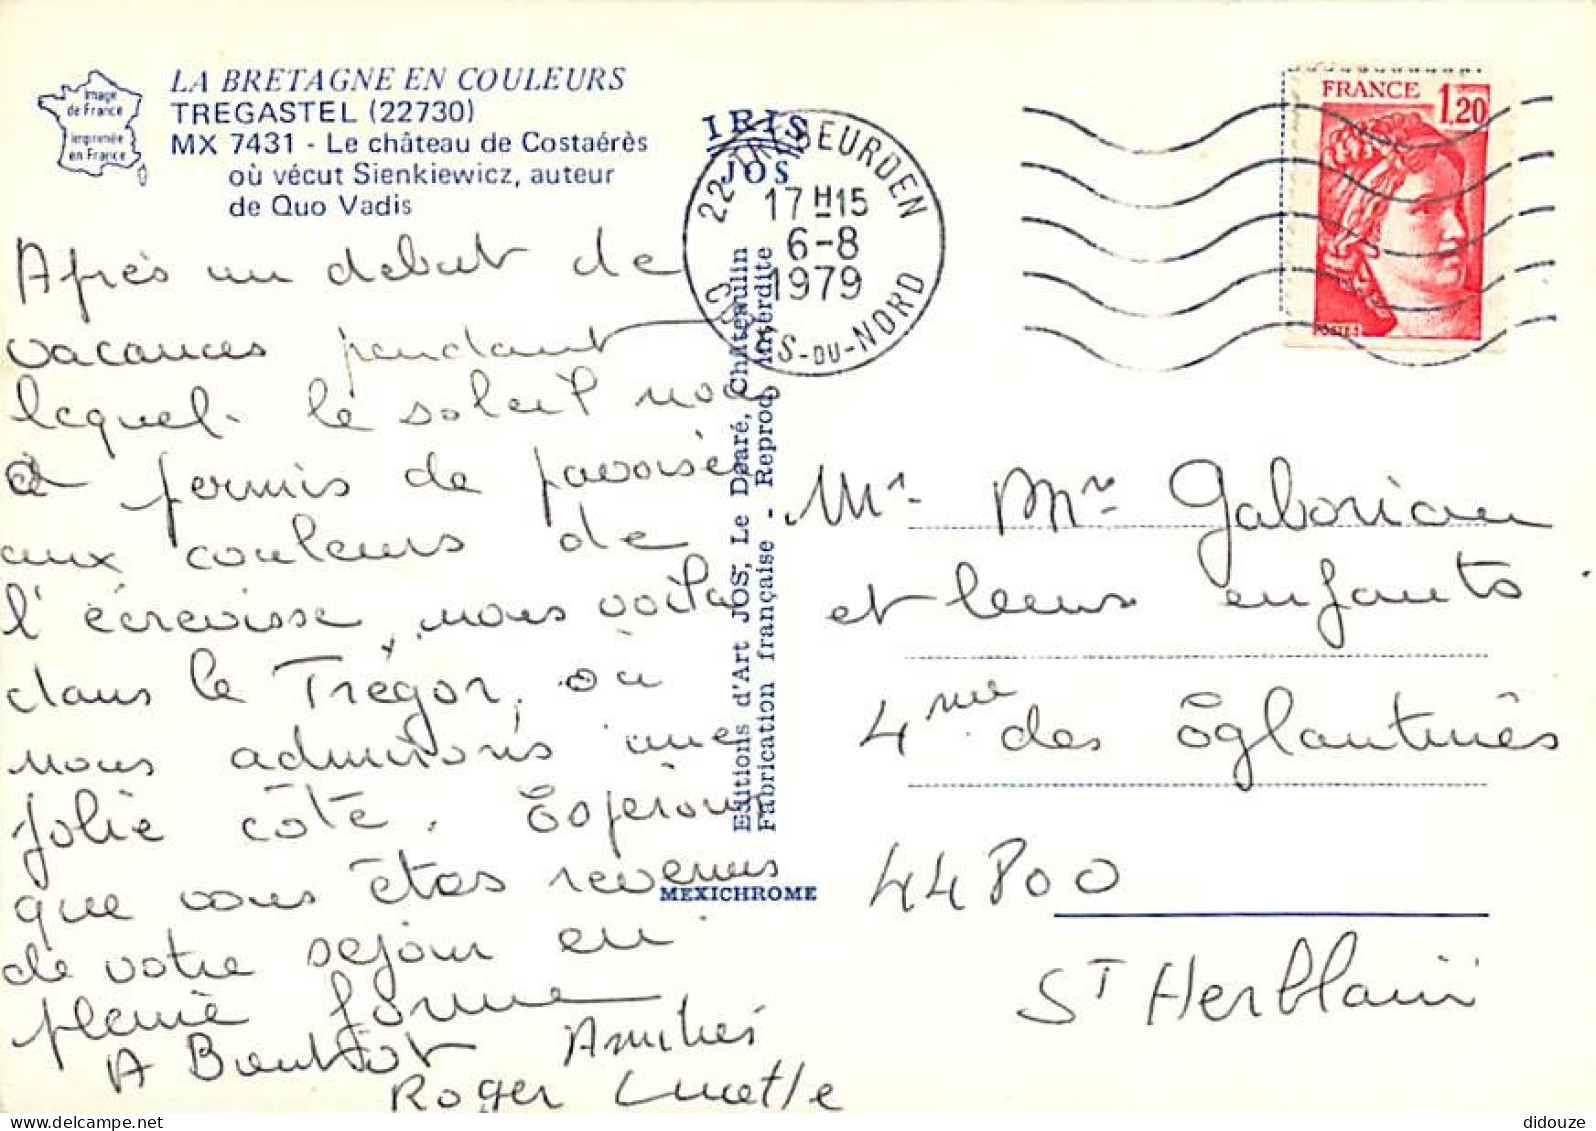 LA BRETAGNE EN COULEURS
TREGASTEL (22730)
MX 7431 - Le château de Costaérès
où vécut Sienkiewicz, auteur
de Quo Vadis
Image
de France
Imprimée
en France
Après un début de
vacances pendant
lequel le soleil nous
a permis de pavoiser
aux couleurs de
l'écrevisse, nous voilà
dans le Trégor, où
nous admirons une
jolie côte. Espérons
que vous êtes revenus
de votre séjour en
pleine forme
A Bientôt Amitiés
Roger Lucette
IRIS
JOS
22 TREBEURDEN
17H15
6-8
1979
COTES-DU-NORD
Editions d'Art JOS, Le Doaré, Châteaulin
Fabrication française - Reproduction interdite
MEXICHROME
FRANCE 1,20
POSTES
Mr Mme Gaboriau
et leurs enfants
4 rue des Églantines
44800
St Herblain
didouze